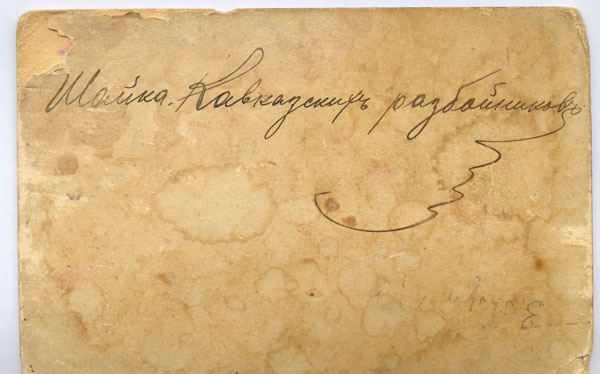 Шайка Кавказскихъ разбойниковъ